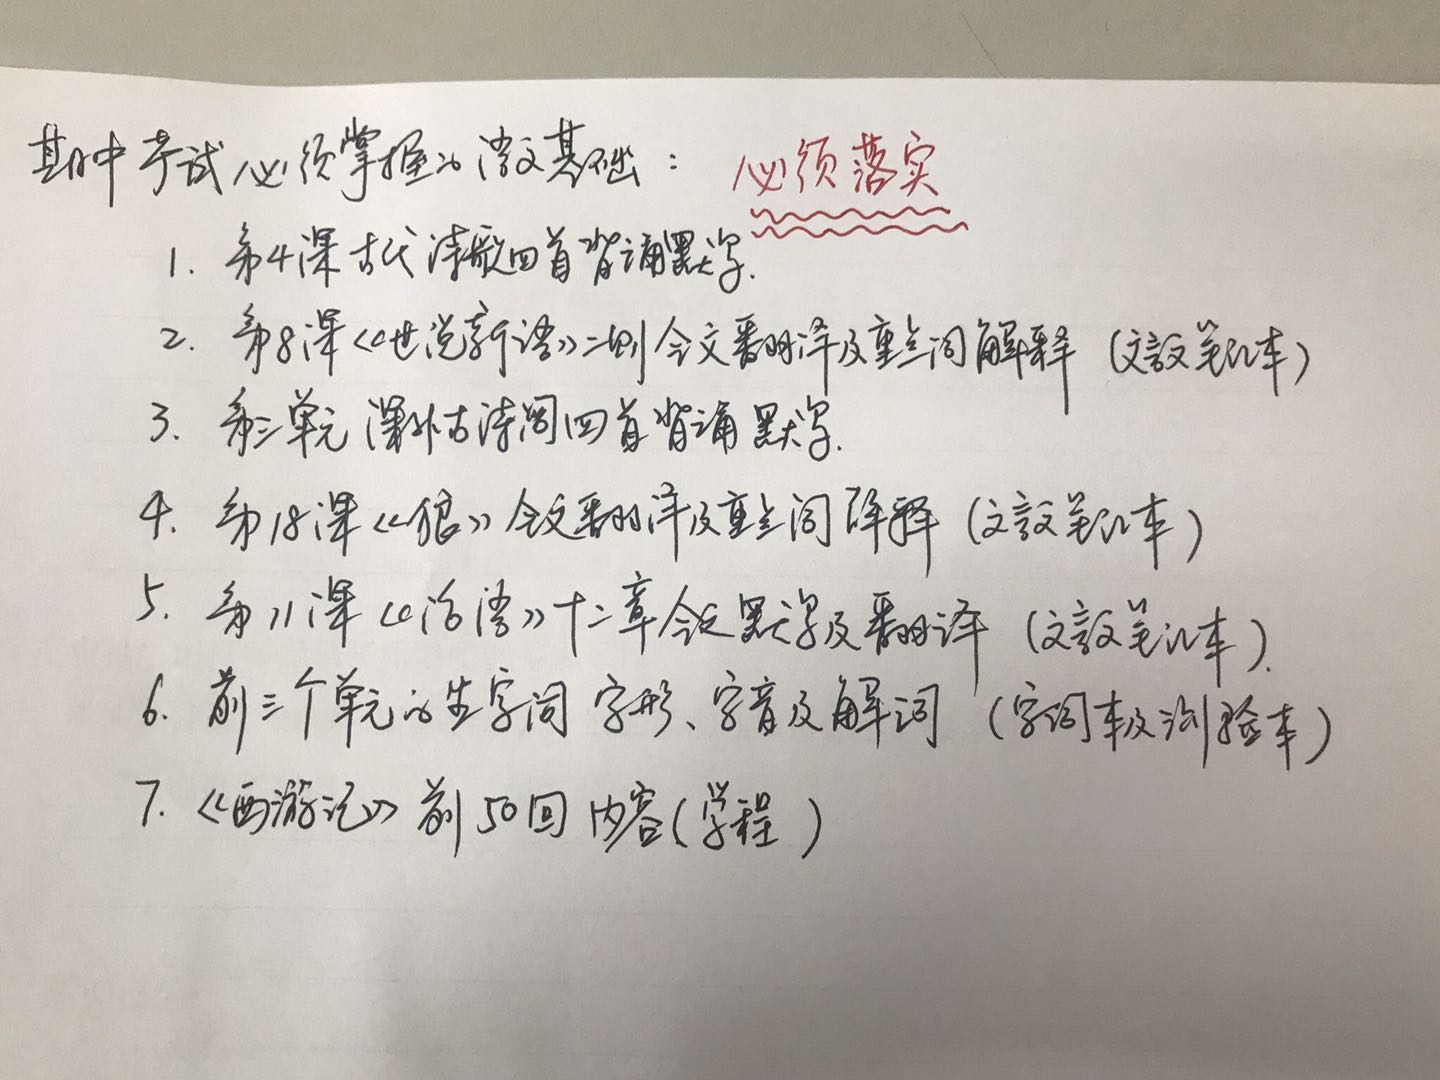 期中考试必须掌握的语文基础： 必须落实
1. 第4课古代诗歌四首背诵默写.
2. 第8课《世说新语》二则全文翻译及重点词解释（文言文笔记本）
3. 第三单元课外古诗词四首背诵默写.
4. 第18课《狼》全文翻译及重点词解释（文言文笔记本）
5. 第11课《论语》十二章全文默写及翻译（文言文笔记本）.
6. 前三个单元的生字词字形、字音及解词（字词本及测验本）
7.《西游记》前50回内容（学程）